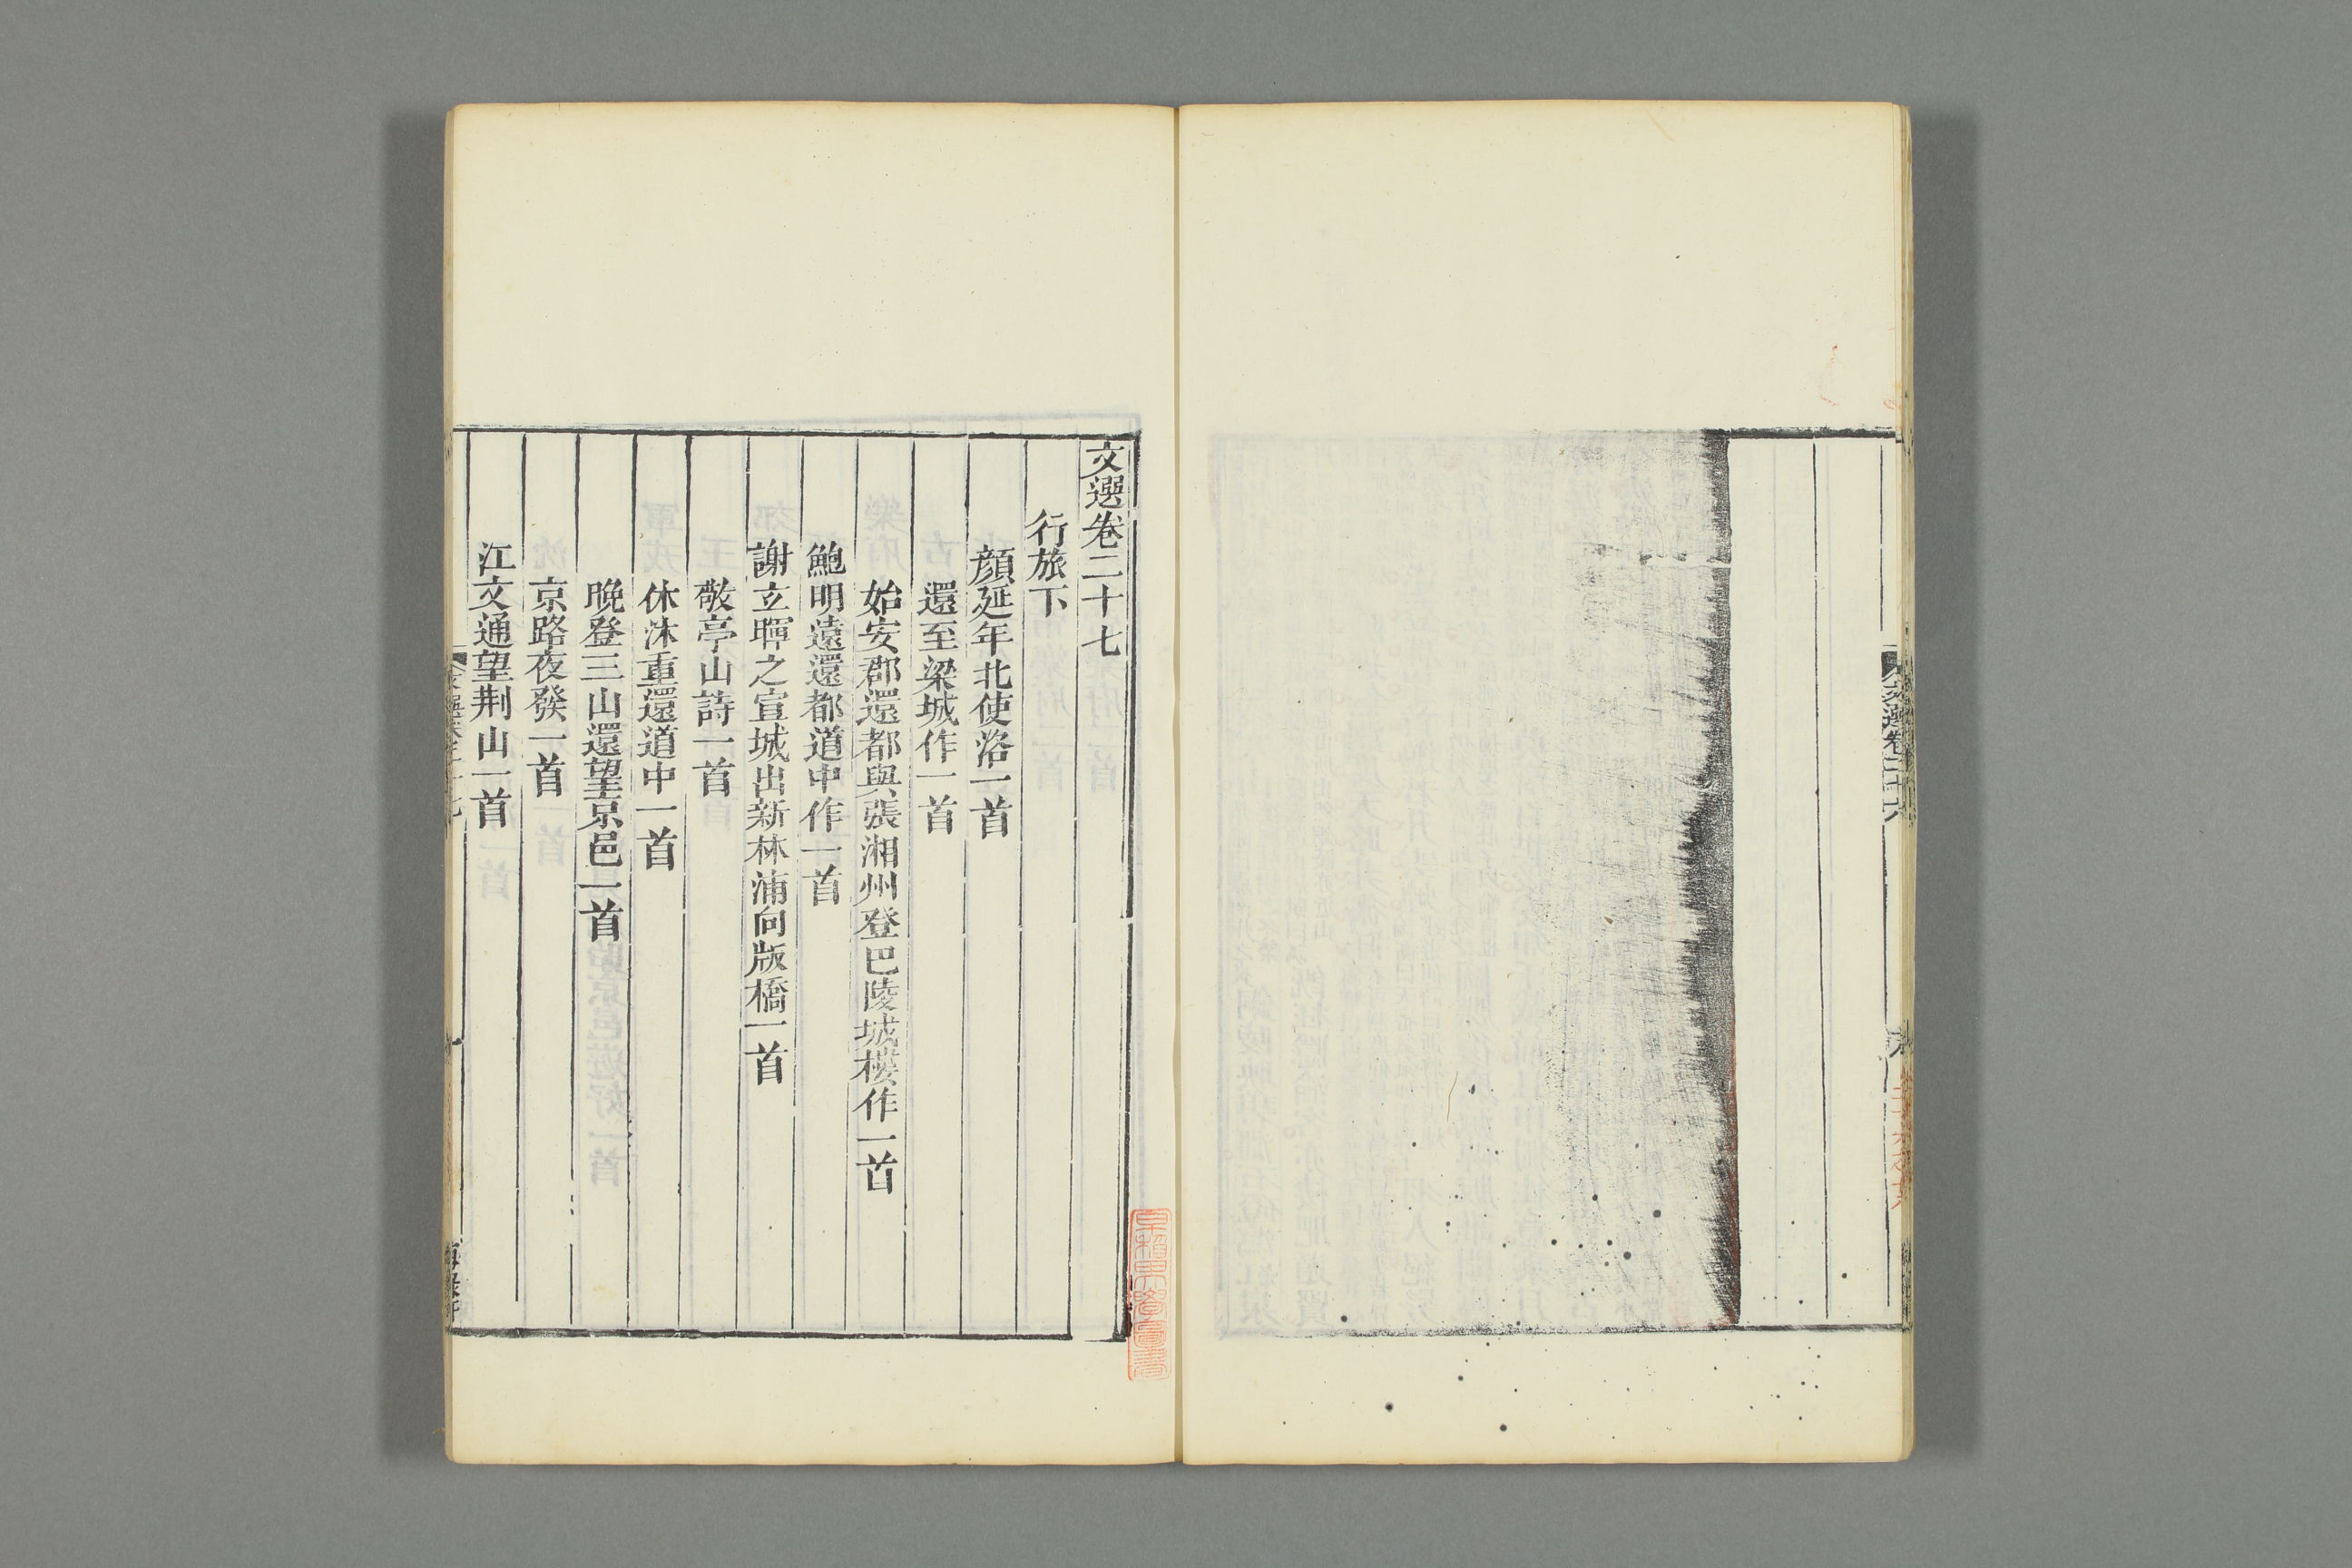 文選卷二十六
文選卷二十七
行旅下
顔延年北使洛一首
還至梁城作一首
始安郡還都與張湘州登巴陵城樓作一首
鮑明遠還都道中作一首
謝玄暉之宣城出新林浦向版橋一首
敬亭山詩一首
休沐重還道中一首
晚登三山還望京邑一首
京路夜發一首
江文通望荆山一首
文選卷二十七